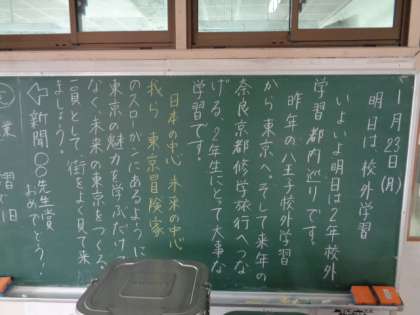 1月23日(月)
明日は校外学習
いよいよ明日は2年校外
学習 都内巡りです。
昨年の八王子校外学習
から東京へ。そして来年の
奈良京都修学旅行へつな
げる、2年生にとって大事な
学習です。
日本の中心 未来の中心
我ら 東京冒険家
のスローガンにあるように
東京の魅力を学ぶだけで
なく未来の東京をつくる
一員として、街をよく見て来
ましょう!
新聞〇〇先生賞
おめでとう!